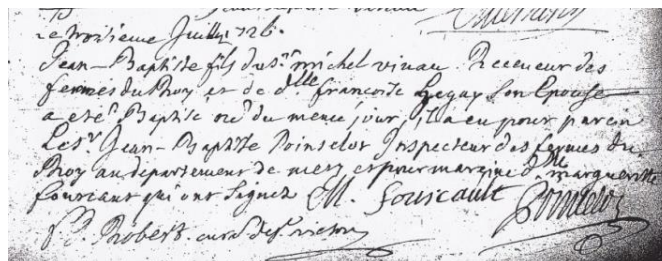 Le troisieme Juillet 1726.
Jean-Baptiste fils du Sr. michel vinau Receveur des
fermes du Roy et de dlle francoise Legay Son Epouse
a eté Baptisé né du meme jour, il a eu pour parein
Le Sr. Jean-Baptiste Poinselot Inspecteur des fermes du
Roy au departement de mets et pour mareine dlle marguerite
fouricaut qui ont Signez M. fouricault Poinselot
Robert curé de St.